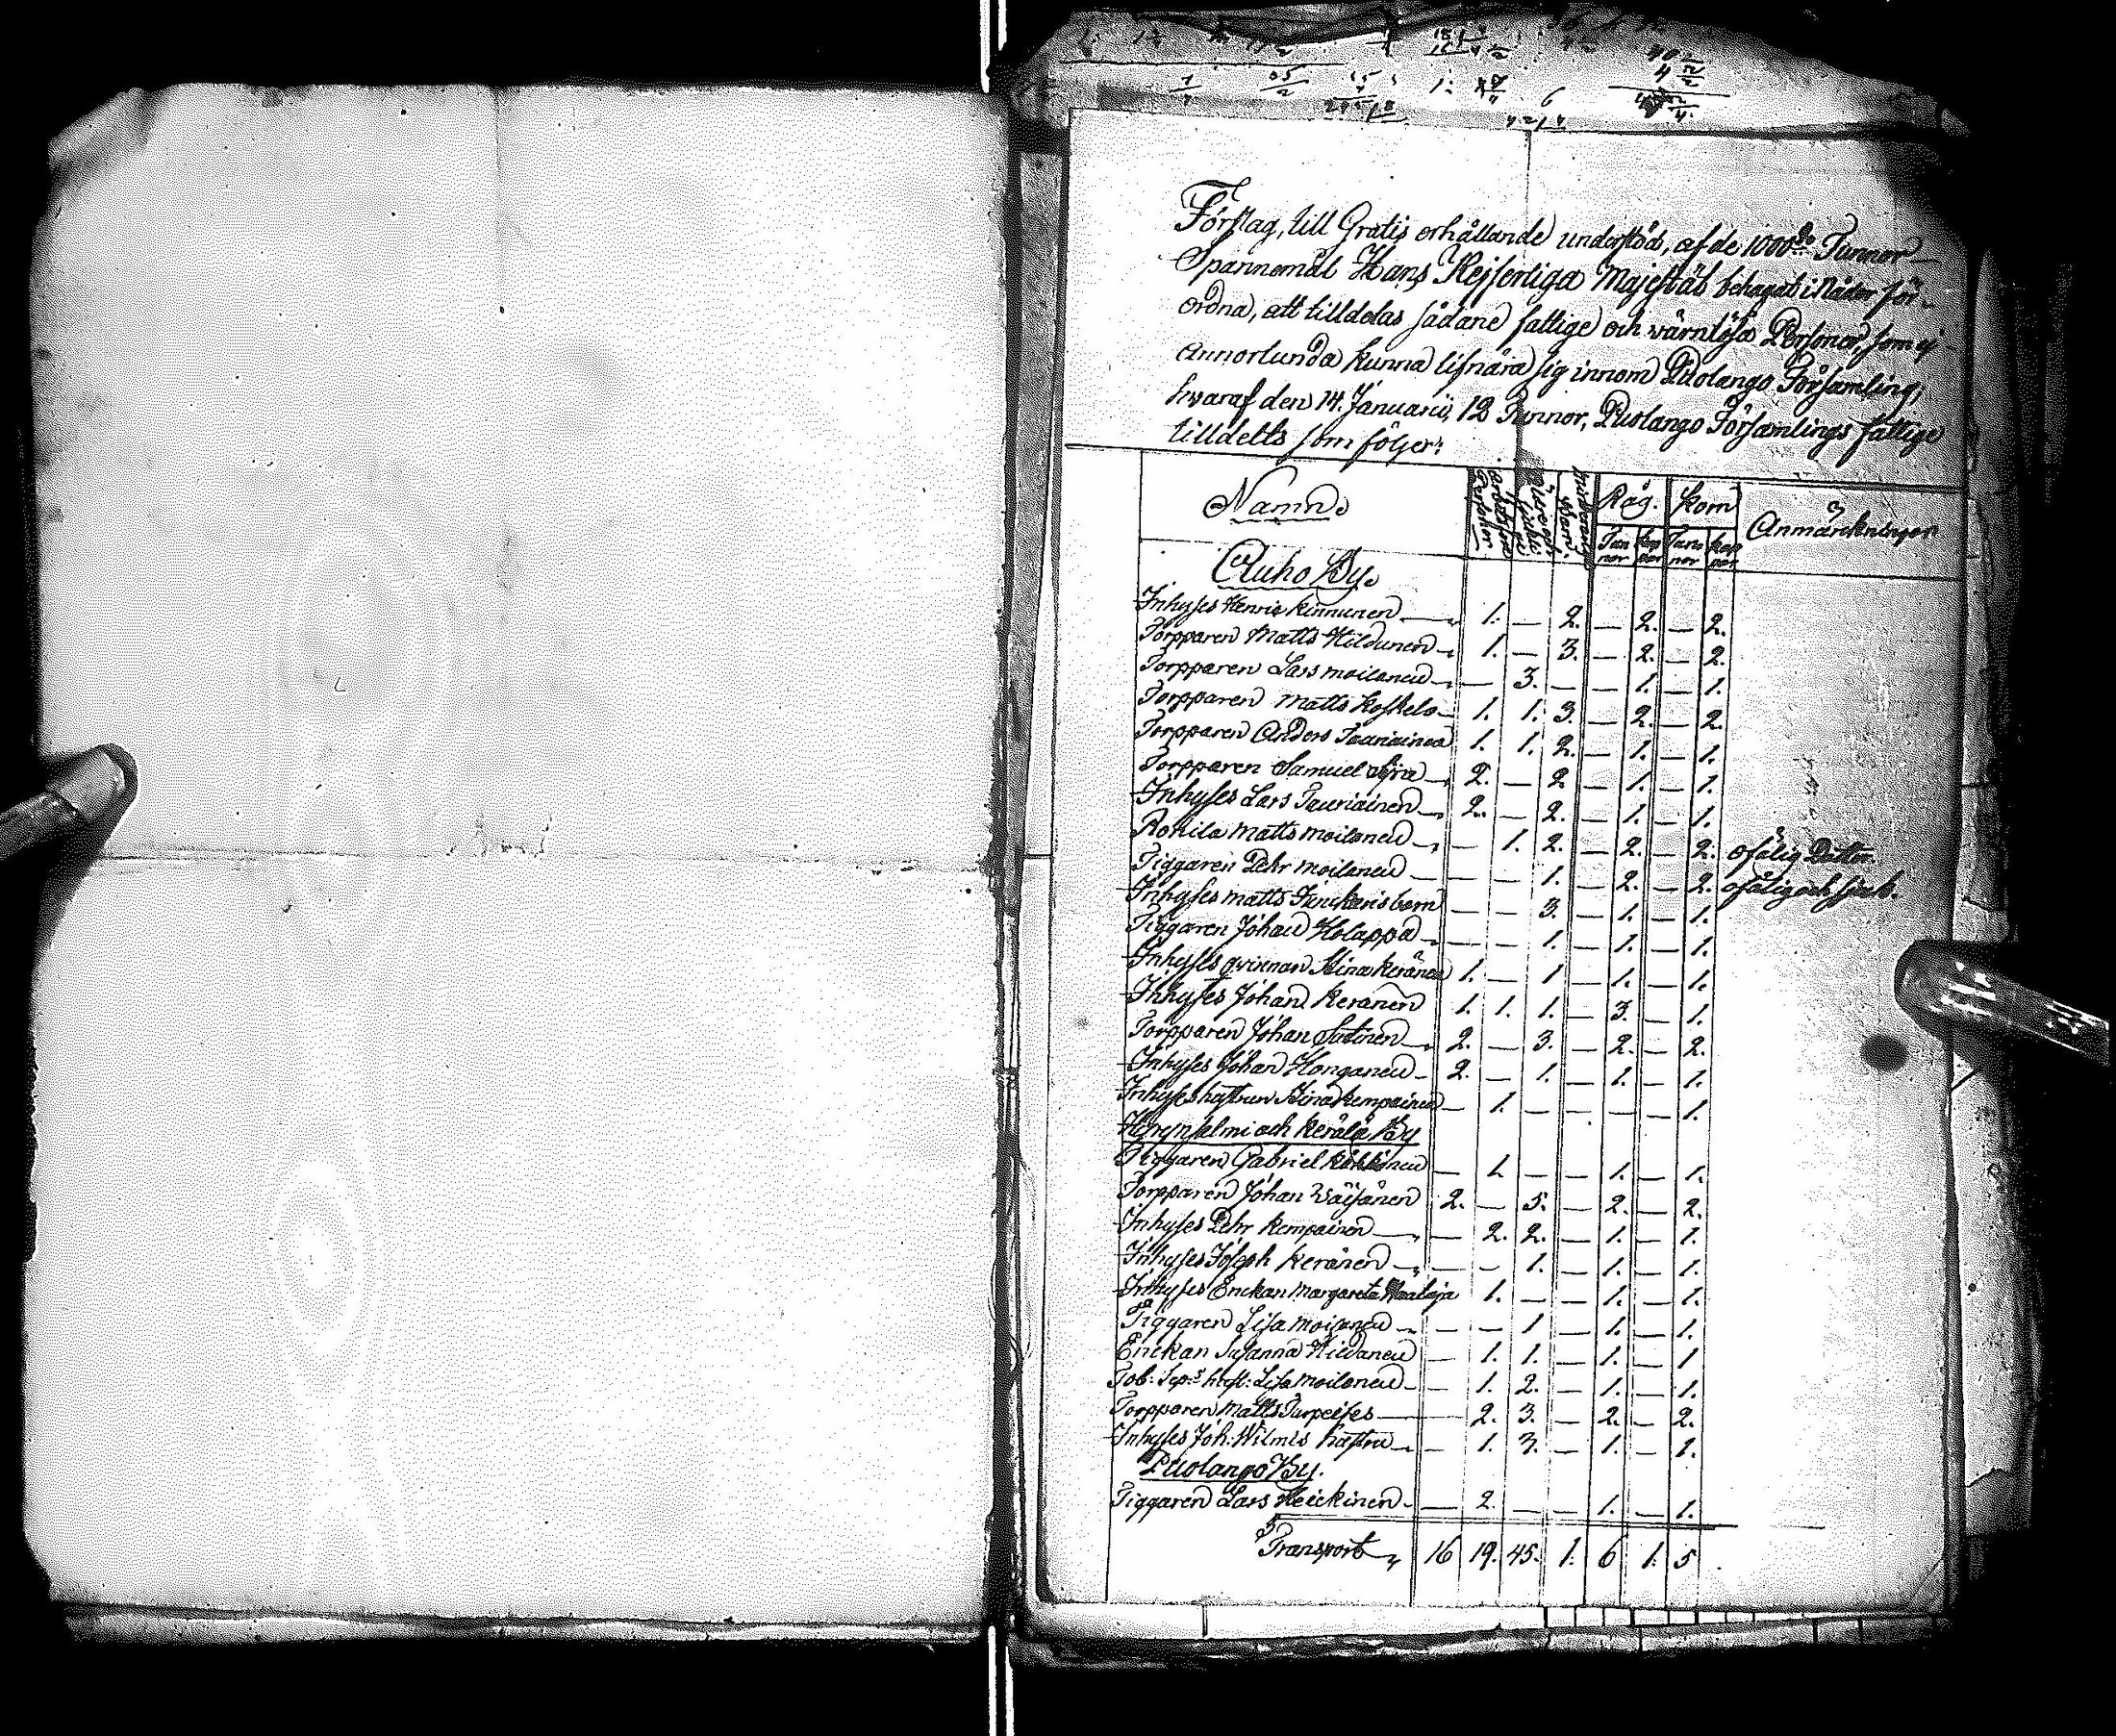 Förslag, till Gratis erhållande understöd, af de 1000de Tunnor
Spannemål Hans Kejserliga Majestät behagat i Nåder för-
ordna, att tilldelas sådane fattige och wärnlösa Personer, som ej
annorlunda kunna lifnära sig innom Puolango Församling,
hvaraf den 14. Januarii, 12 Tunnor, Puolango Församlings fattige
tilldelts som följer:
Namn Råg. Korn Anmärkningar
Tun nor Kap par Tun nor Kap par
Auho By.
Inhyses Henric Kinnunen 1. — 2. — 2. — 2.
Torpparen Matts Hildunen 1. — 3. — 2. — 2.
Torpparen Lars Moilanen — 3. — — 1. — 1.
Torpparen Matts Koskelo 1. 1. 3. — 2. — 2.
Torpparen Anders Tauriainen 1. 1. 2. — 1. — 1.
Torpparen Samuel 2. — 2 — 1. — 1.
Inhyses Lars Tauriainen 2. — 2. — 1. — 1.
Matts Moilanen — 1. 2. — 2. — 2. ofälig Dotter.
Tiggaren Pehr Moilanen — — 1. — 2. — 2. ofälig och sjuk.
Inhyses Matts barn — — 3. — 1. — 1.
Tiggaren Johan Holappa — — 1. — 1. — 1.
Inhyses qwinnan Stina Keränen 1. — 1 — 1. — 1.
Inhyses Johan Keränen 1. 1. 1. — 3. — 1.
Torpparen Johan Sutinen 2. — 3. — 2. — 2.
Inhyses Johan Honganen 2. — 1. — 1. — 1.
Inhyses hustrun Stina Kempainen — 1. — — — — 1.
Hyrynsalmi och Kerälä By
Tiggaren Gabriel — 1. — — 1. — 1.
Torpparen Johan Wäisänen 2. — 5. — 2. — 2.
Inhyses Pehr Kempainen — 2. 2. — 1. — 1.
Inhyses Joseph Keränen — — 1. — 1. — 1.
Inhyses Enckan Margareta 1. — — 1. — 1.
Tiggaren Lisa Moilanen — — 1 — 1. — 1.
Enckan Susanna Hildanen — 1. 1. — 1. — 1
Lisa Moilanen — 1. 2. — 1. — 1.
Torpparen Matts Turpeises — 2. 3. — 2. — 2.
Inhyses Joh: Wilmis hustru — 1. 3. — 1. — 1.
Puolango By.
Tiggaren Lars Heickinen — 2. — — 1. — 1.
Transport 16 19. 45. 1. 6 1. 5